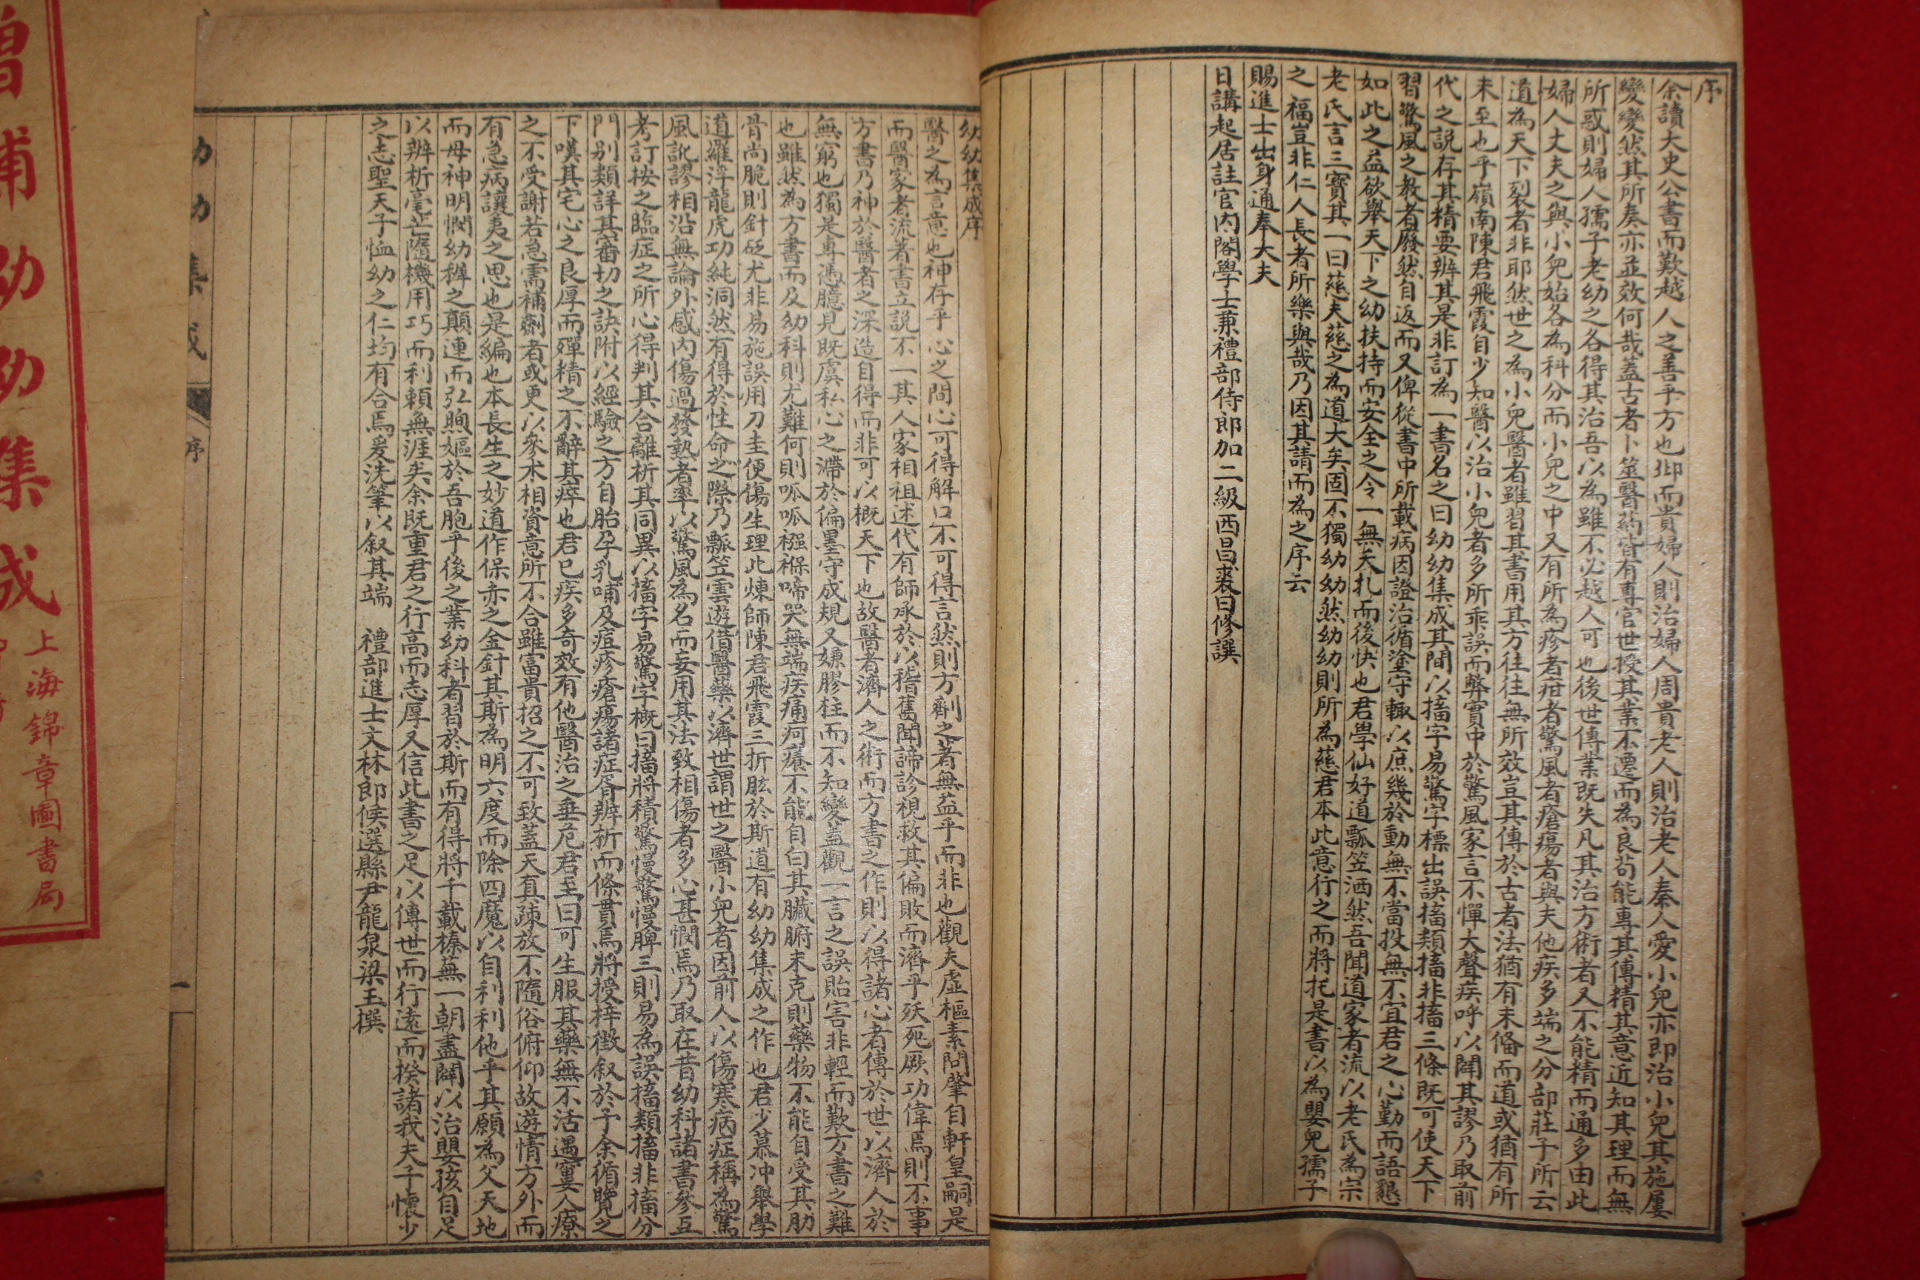 序
余讀大史公書而歎越人之善乎方也邯而貴婦人則治婦人周貴老人則治老人秦人愛小兒亦即治小兒其施屢
變變然其所奏亦並效何哉蓋古者卜筮醫藥皆有專官世授其業不遷而為良苟能專其傳精其意近知其理而無
所惑則婦人孺子老幼之各得其治吾以為雖不必越人可也後世傳業既失凡其治方術者又不能精而通多由此
婦人丈夫之與小兒始各為科分而小兒之中又有所為疹者疳者驚風者瘡瘍者與夫他疾多端之分部莊子所云
道為天下裂者非耶然世之為小兒醫者雖習其書用其方往往無所效豈其傳於古者法猶有未備而道或猶有所
未至也乎嶺南陳君飛霞自少知醫以治小兒者多所乖誤而弊實中於驚風家言不憚大聲疾呼以闢其謬乃取前
代之說存其精要辨其是非訂為一書名之曰幼幼集成其間以搐字易驚字標出誤搐類搐非搐三條既可使天下
習驚風之教者廢然自返而又俾從書中所載病因證治循塗守轍以庶幾於動無不當投無不宜君之心勤而語懇
如此之益欲舉天下之幼扶持而安全之令一無夭扎而後快也君學仙好道瓢笠洒然吾聞道家者流以老氏為宗
老氏言三寶其一曰慈夫慈之為道大矣固不獨幼幼然幼幼則所為慈君本此意行之而將托是書以為嬰兒孺子
之福豈非仁人長者所樂與哉乃因其請而為之序云
賜進士出身通奉大夫
日講起居註官內閣學士兼禮部侍郎加二級西昌裘曰修譔
幼幼集成序
醫之為言意也神存乎心之間心可得解口不可得言然則方劑之著無益乎而非也觀夫虛樞素問肇自軒皇嗣是
而醫家者流著書立說不一其人家相祖述代有師承於以稽舊聞諦診視救其偏敗而濟乎殀死厥功偉焉則不事
方書乃神於醫者之深造自得而非可以概天下也故醫者濟人之術而方書之作則以得諸心者傳於世以濟人於
無窮也獨是專憑臆見既虞私心之滯於偏墨守成規又嫌膠柱而不知變蓋觀一言之誤貽害非輕而歎方書之難
也雖然為方書而及幼科則尤難何則呱呱襁褓啼哭無端疾痛疴癢不能自白其臟腑未克則藥物不能自受其肋
骨尚脆則針砭尤非易施誤用刀圭便傷生理此煉師陳君飛霞三折肱於斯道有幼幼集成之作也君少慕冲舉學
道羅浮龍虎功純洞然有得於性命之際乃瓢笠雲遊借醫藥以濟世謂世之醫小兒者因前人以傷寒病痙稱為驚
風訛謬相沿無論外感內傷過發熱者率以驚風為名而妄用其法致相傷者多心甚憫焉乃取在昔幼科諸書參互
考訂按之臨症之所心得判其合離析其同異以搐字易驚字概曰搐將積驚慢驚慢脾三則易為誤搐類搐非搐分
門別類詳其審切之訣附以經驗之方自胎孕乳哺及痘疹瘡瘍諸症胥辨析而條貫焉將授梓徵叙於予余循覽之
下嘆其宅心之良厚而殫精之不辭其瘁也君已疾多奇效有他醫治之垂危君至曰可生服其藥無不活遇窶人療
之不受謝若急需補劑者或更以參朮相資意所不合雖富貴招之不可致蓋天真疎放不隨俗俯仰故遊情方外而
有急病讓夷之思也是編也本長生之妙道作保赤之金針其斯為明六度而除四魔以自利利他乎其願為父天地
而母神明憫幼穉之顛連而弘煦嫗於吾胞乎後之業幼科者習於斯而有得將千載榛蕪一朝盡闢以治嬰孩自足
以辨析毫芒隨機用巧而利賴無涯矣余既重君之行高而志厚又信此書之足以傳世而行遠而揆諸我夫子懷少
之志聖天子恤幼之仁均有合焉爰洗筆以叙其端 禮部進士文林郎候選縣尹龍泉梁玉撰
幼幼集成 序 一
增補幼幼集成
上海錦章圖書局